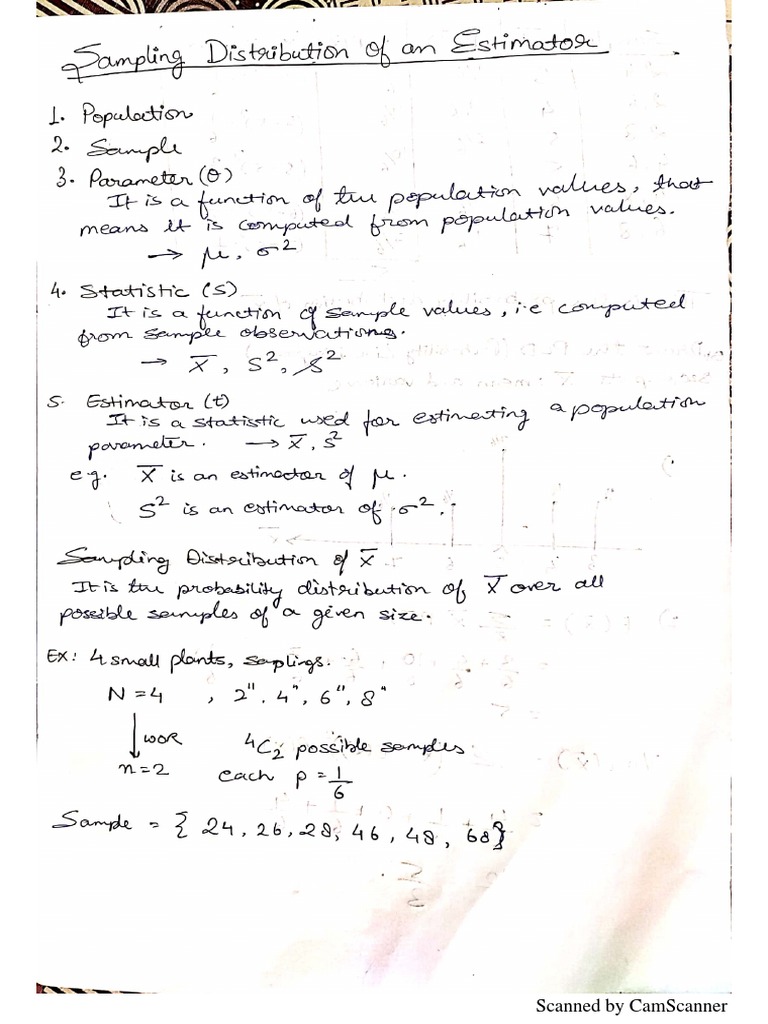 Sampling Distribution of an Estimator
1. Population
2. Sample
3. Parameter (θ)
It is a function of the population values, that
means it is computed from population values.
→ μ, σ²
4. Statistic (S)
It is a function of sample values, i.e computed
from sample observations.
→ X̅, S², s²
5. Estimator (t)
It is a statistic used for estimating a population
parameter. → X̅, S²
e.g. X̅ is an estimator of μ.
S² is an estimator of σ².
Sampling Distribution of X̅
It is the probability distribution of X̅ over all
possible samples of a given size.
Ex: 4 small plants, saplings.
N = 4 , 2", 4", 6", 8"
↓ WOR ⁴C₂ possible samples
n = 2 each p = 1/6
Sample = { 24, 26, 28, 46, 48, 68}
Scanned by CamScanner